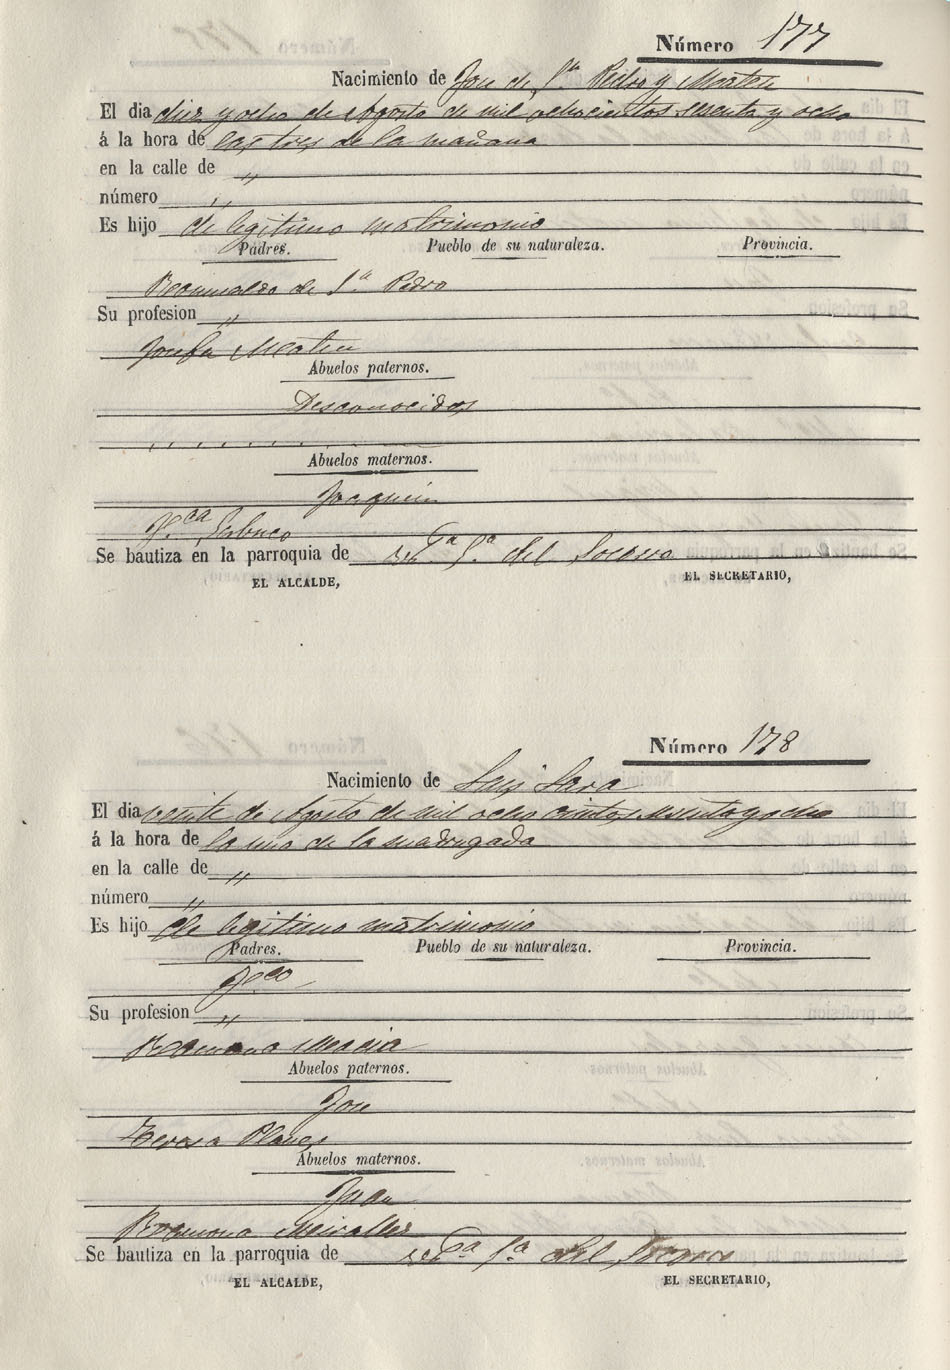 Número 177
Nacimiento de Jose de Sn Pedro y Mateu
El dia diez y ocho de Agosto de mil ochocientos sesenta y ocho
á la hora de las tres de la mañana
en la calle de "
número "
Es hijo de legitimo matrimonio
Padres. Pueblo de su naturaleza. Provincia.
Romualdo de Sn Pedro
Su profesion "
Josefa Mateu
Abuelos paternos.
Desconocidos
Abuelos maternos.
Joaquin
Fca
Se bautiza en la parroquia de Sra del Socorro
EL ALCALDE, EL SECRETARIO,
Número 178
Nacimiento de Luis Lara
El dia veinte de Agosto de mil ocho cientos sesenta y ocho
á la hora de la una de la madrugada
en la calle de "
número "
Es hijo de legitimo matrimonio
Padres. Pueblo de su naturaleza. Provincia.
Fco
Su profesion "
Ramona Macia
Abuelos paternos.
Jose
Teresa Planes
Abuelos maternos.
Juan
Ramona Miralles
Se bautiza en la parroquia de Sa del Socorro
EL ALCALDE, EL SECRETARIO,